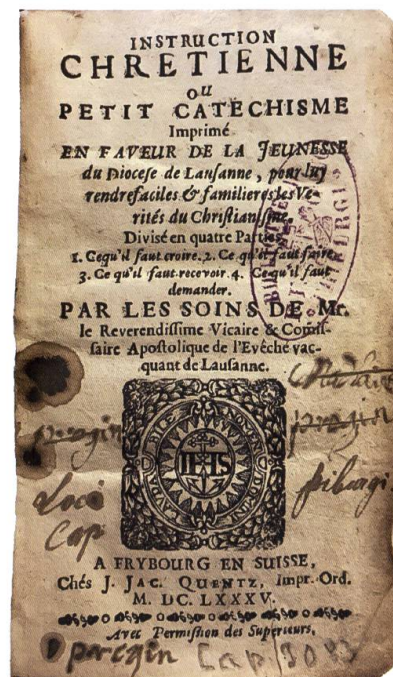 INSTRUCTION
CHRETIENNE
OU
PETIT CATECHISME
Imprimé
EN FAVEUR DE LA JEUNESSE
du Diocese de Lausanne, pour luy
rendre faciles & familieres les Ve-
rités du Christianisme.
Divisé en quatre Parties.
1. Ce qu'il faut croire. 2. Ce qu'il faut faire
3. Ce qu'il faut recevoir. 4. Ce qu'il faut
demander.
PAR LES SOINS DE Mr.
le Reverendissime Vicaire & Comis-
saire Apostolique de l'Evêché vac-
quant de Lausanne.
LAUDABILE NOMEN DOMINI
IHS
Loco
Cap
friburgi
A FRYBOURG EN SUISSE,
Chés J. JAC. QUENTZ, Impr. Ord.
M. DC. LXXXV.
Avec Permission des Superieurs,
Cap